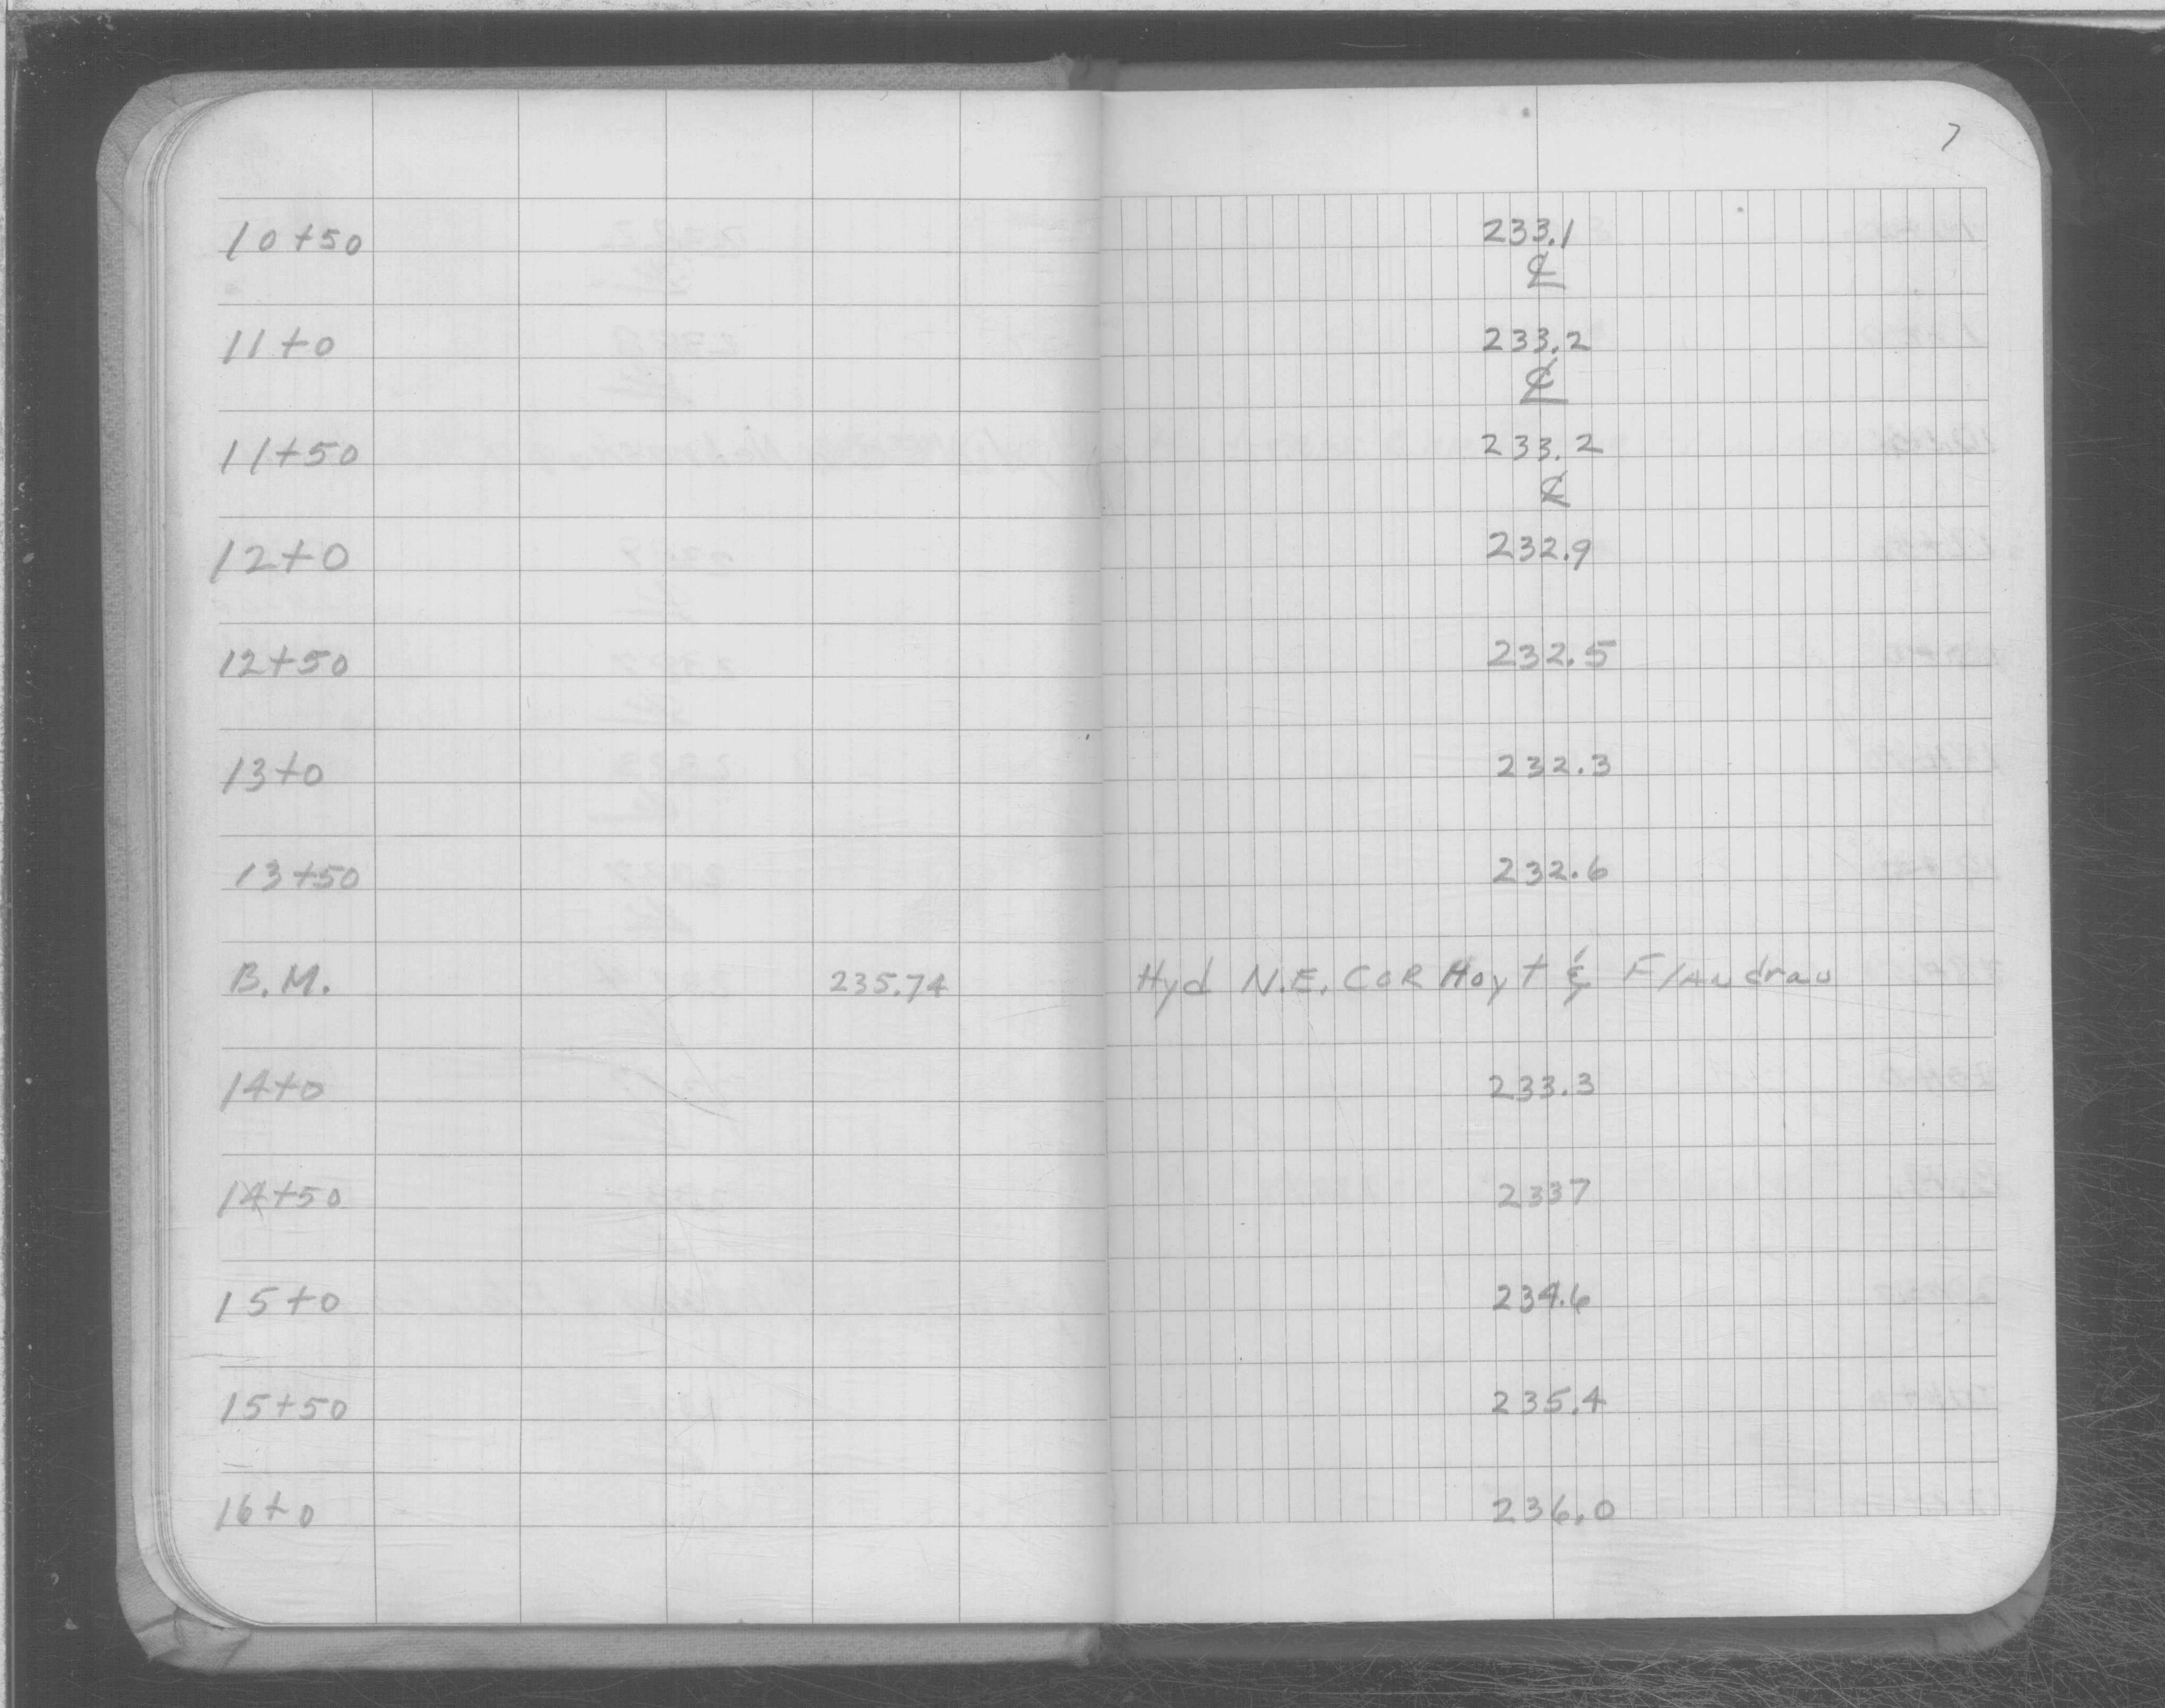 7
10+50 233.1
℄
11+0 233.2
℄
11+50 233.2
℄
12+0 232.9
12+50 232.5
13+0 232.3
13+50 232.6
B.M. 235.74 Hyd N.E. COR Hoyt & Flandrau
14+0 233.3
14+50 2337
15+0 234.6
15+50 235.4
16+0 236.0